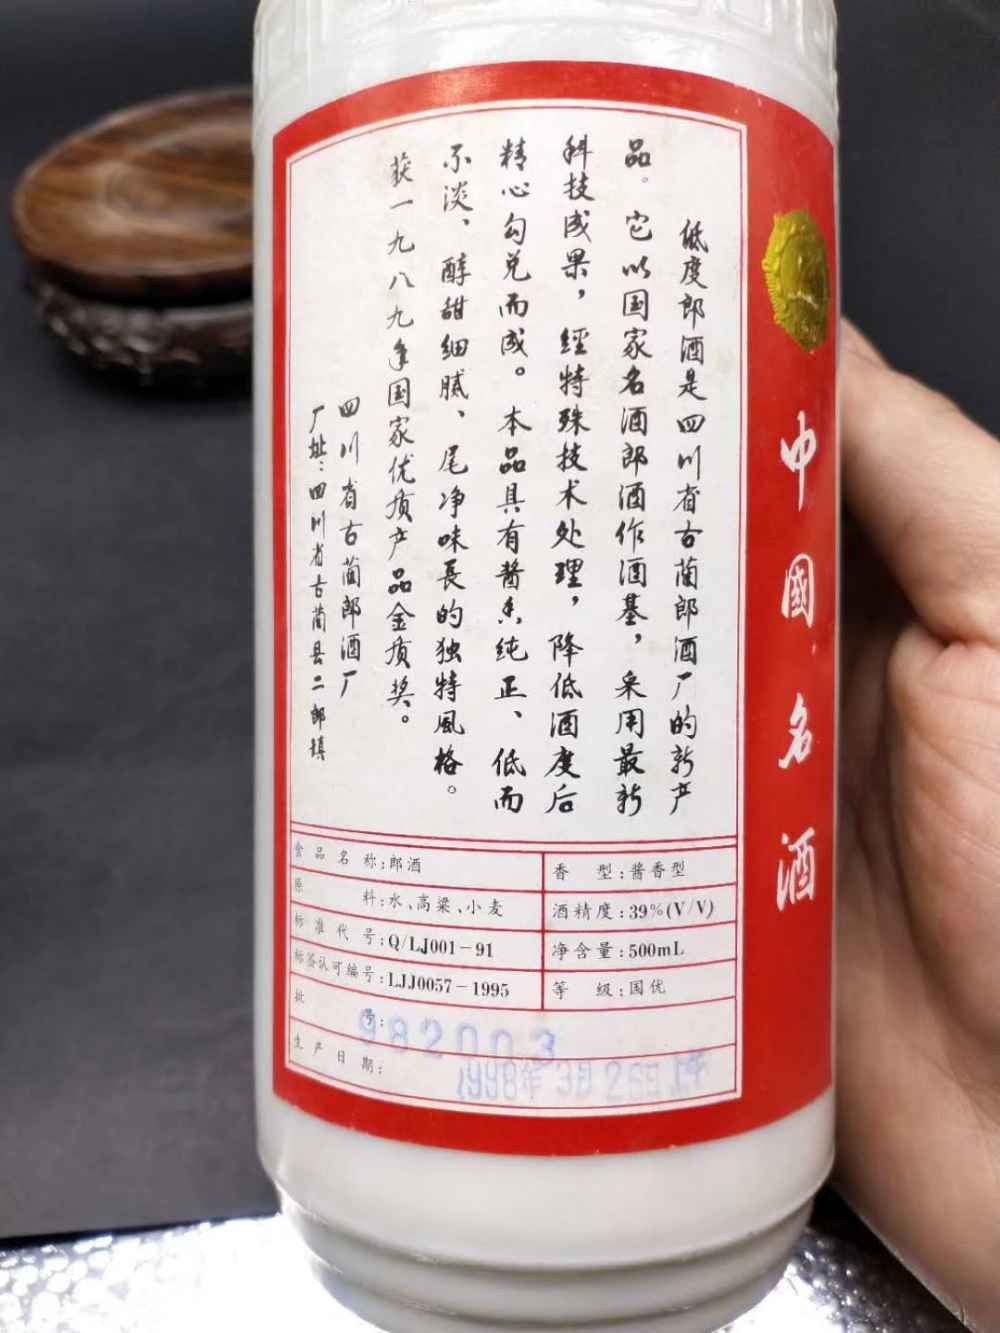 低度郎酒是四川省古蔺郎酒厂的新产
品。它以国家名酒郎酒作酒基，采用最新
科技成果，經特殊技术处理，降低酒度后
精心勾兑而成。本品具有酱香纯正、低而
不淡、醇甜细腻、尾净味長的独特風格。
获一九八九年国家优质产品金质奖。
四川省古蔺郎酒厂
厂址：四川省古蔺县二郎镇
食品名称：郎酒
香型：酱香型
原料：水、高粱、小麦
酒精度：39%(V/V)
标准代号：Q/LJ001-91
净含量：500mL
标签认可编号：LJJ0057-1995
等级：国优
批号：982003
生产日期：1998年3月26日
中國名酒